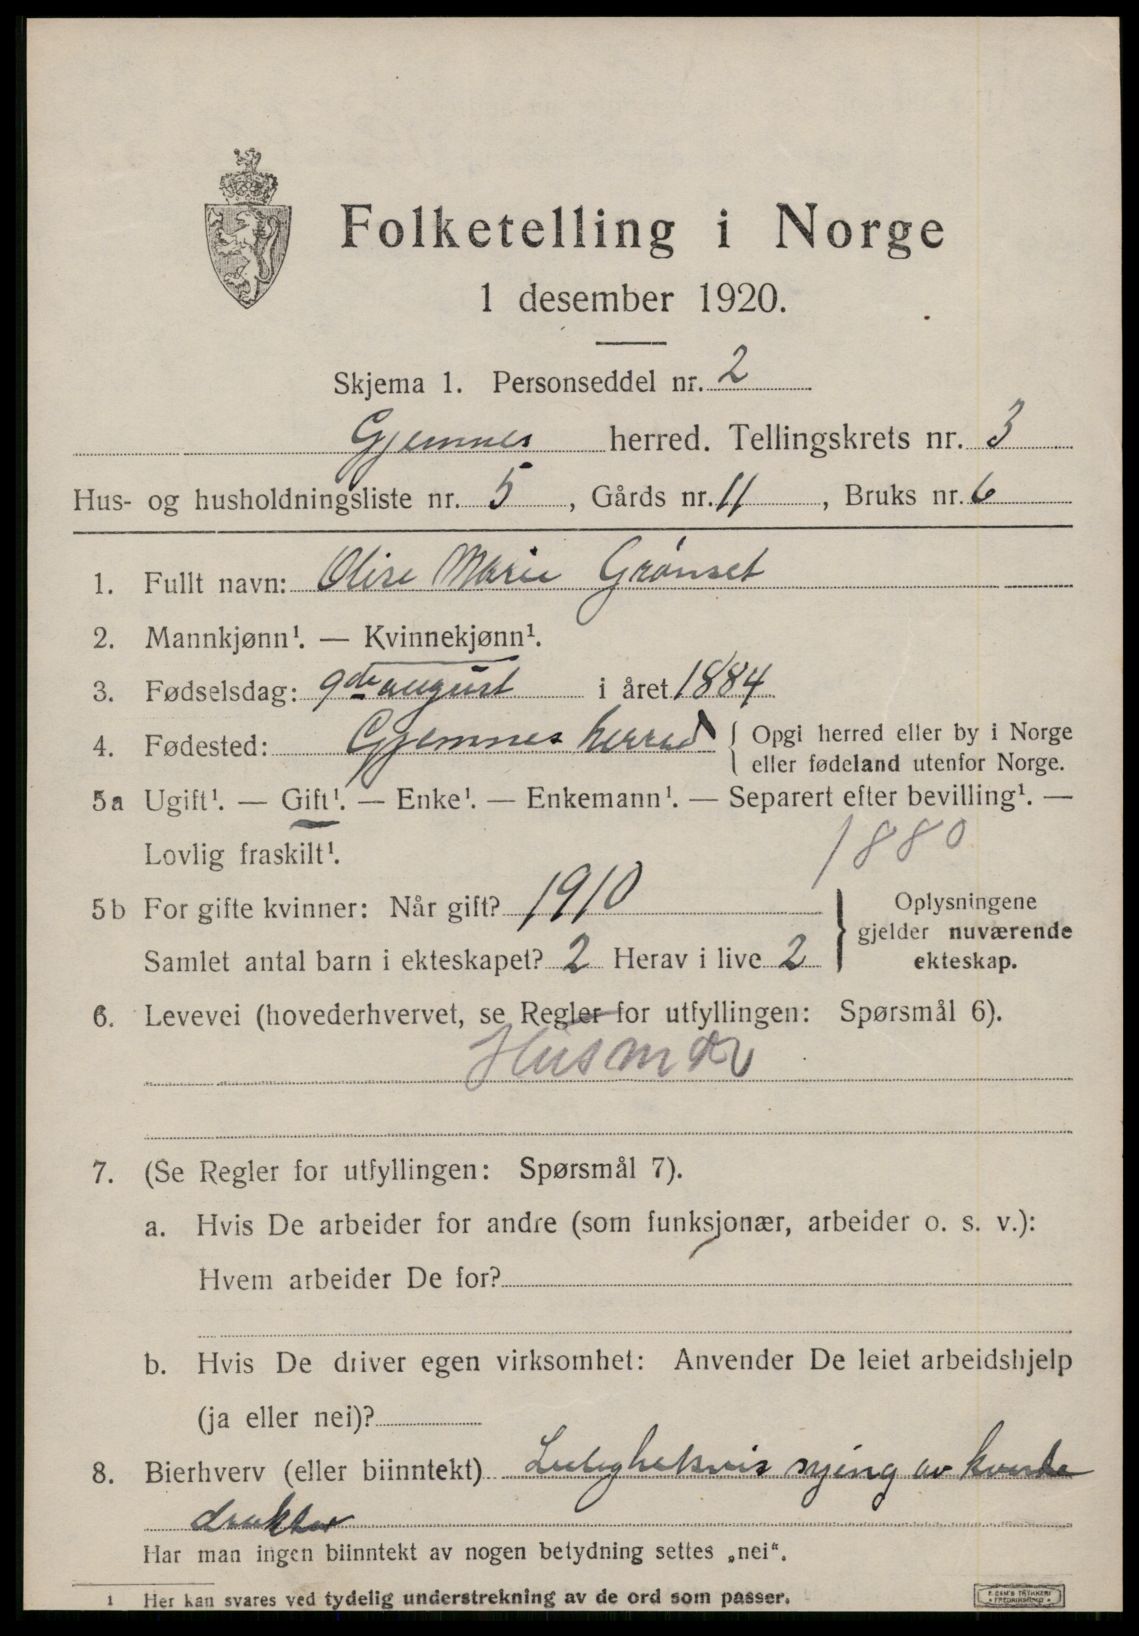 Folketelling i Norge
1 desember 1920.
Skjema 1. Personseddel nr. 2
Gjemnes herred. Tellingskrets nr. 3
Hus- og husholdningsliste nr. 5, Gårds nr. 11, Bruks nr. 6
1. Fullt navn: Olise Marie Grønset
2. Mannkjønn¹. — Kvinnekjønn¹.
3. Fødselsdag: 9de august i året 1884
4. Fødested: Gjemnes herred { Opgi herred eller by i Norge
eller fødeland utenfor Norge.
5a Ugift¹. — Gift¹. — Enke¹. — Enkemann¹. — Separert efter bevilling¹. —
Lovlig fraskilt¹. 1880
5b For gifte kvinner: Når gift? 1910
Samlet antal barn i ekteskapet? 2 Herav i live 2
} Oplysningene
gjelder nuværende
ekteskap.
6. Levevei (hovederhvervet, se Regler for utfyllingen: Spørsmål 6).
Husmor
7. (Se Regler for utfyllingen: Spørsmål 7).
a. Hvis De arbeider for andre (som funksjonær, arbeider o. s. v.):
Hvem arbeider De for?
b. Hvis De driver egen virksomhet: Anvender De leiet arbeidshjelp
(ja eller nei)?
8. Bierhverv (eller biinntekt) Leilighetsvis sying av kvinde
drakter
Har man ingen biinntekt av nogen betydning settes „nei“.
1 Her kan svares ved tydelig understrekning av de ord som passer.